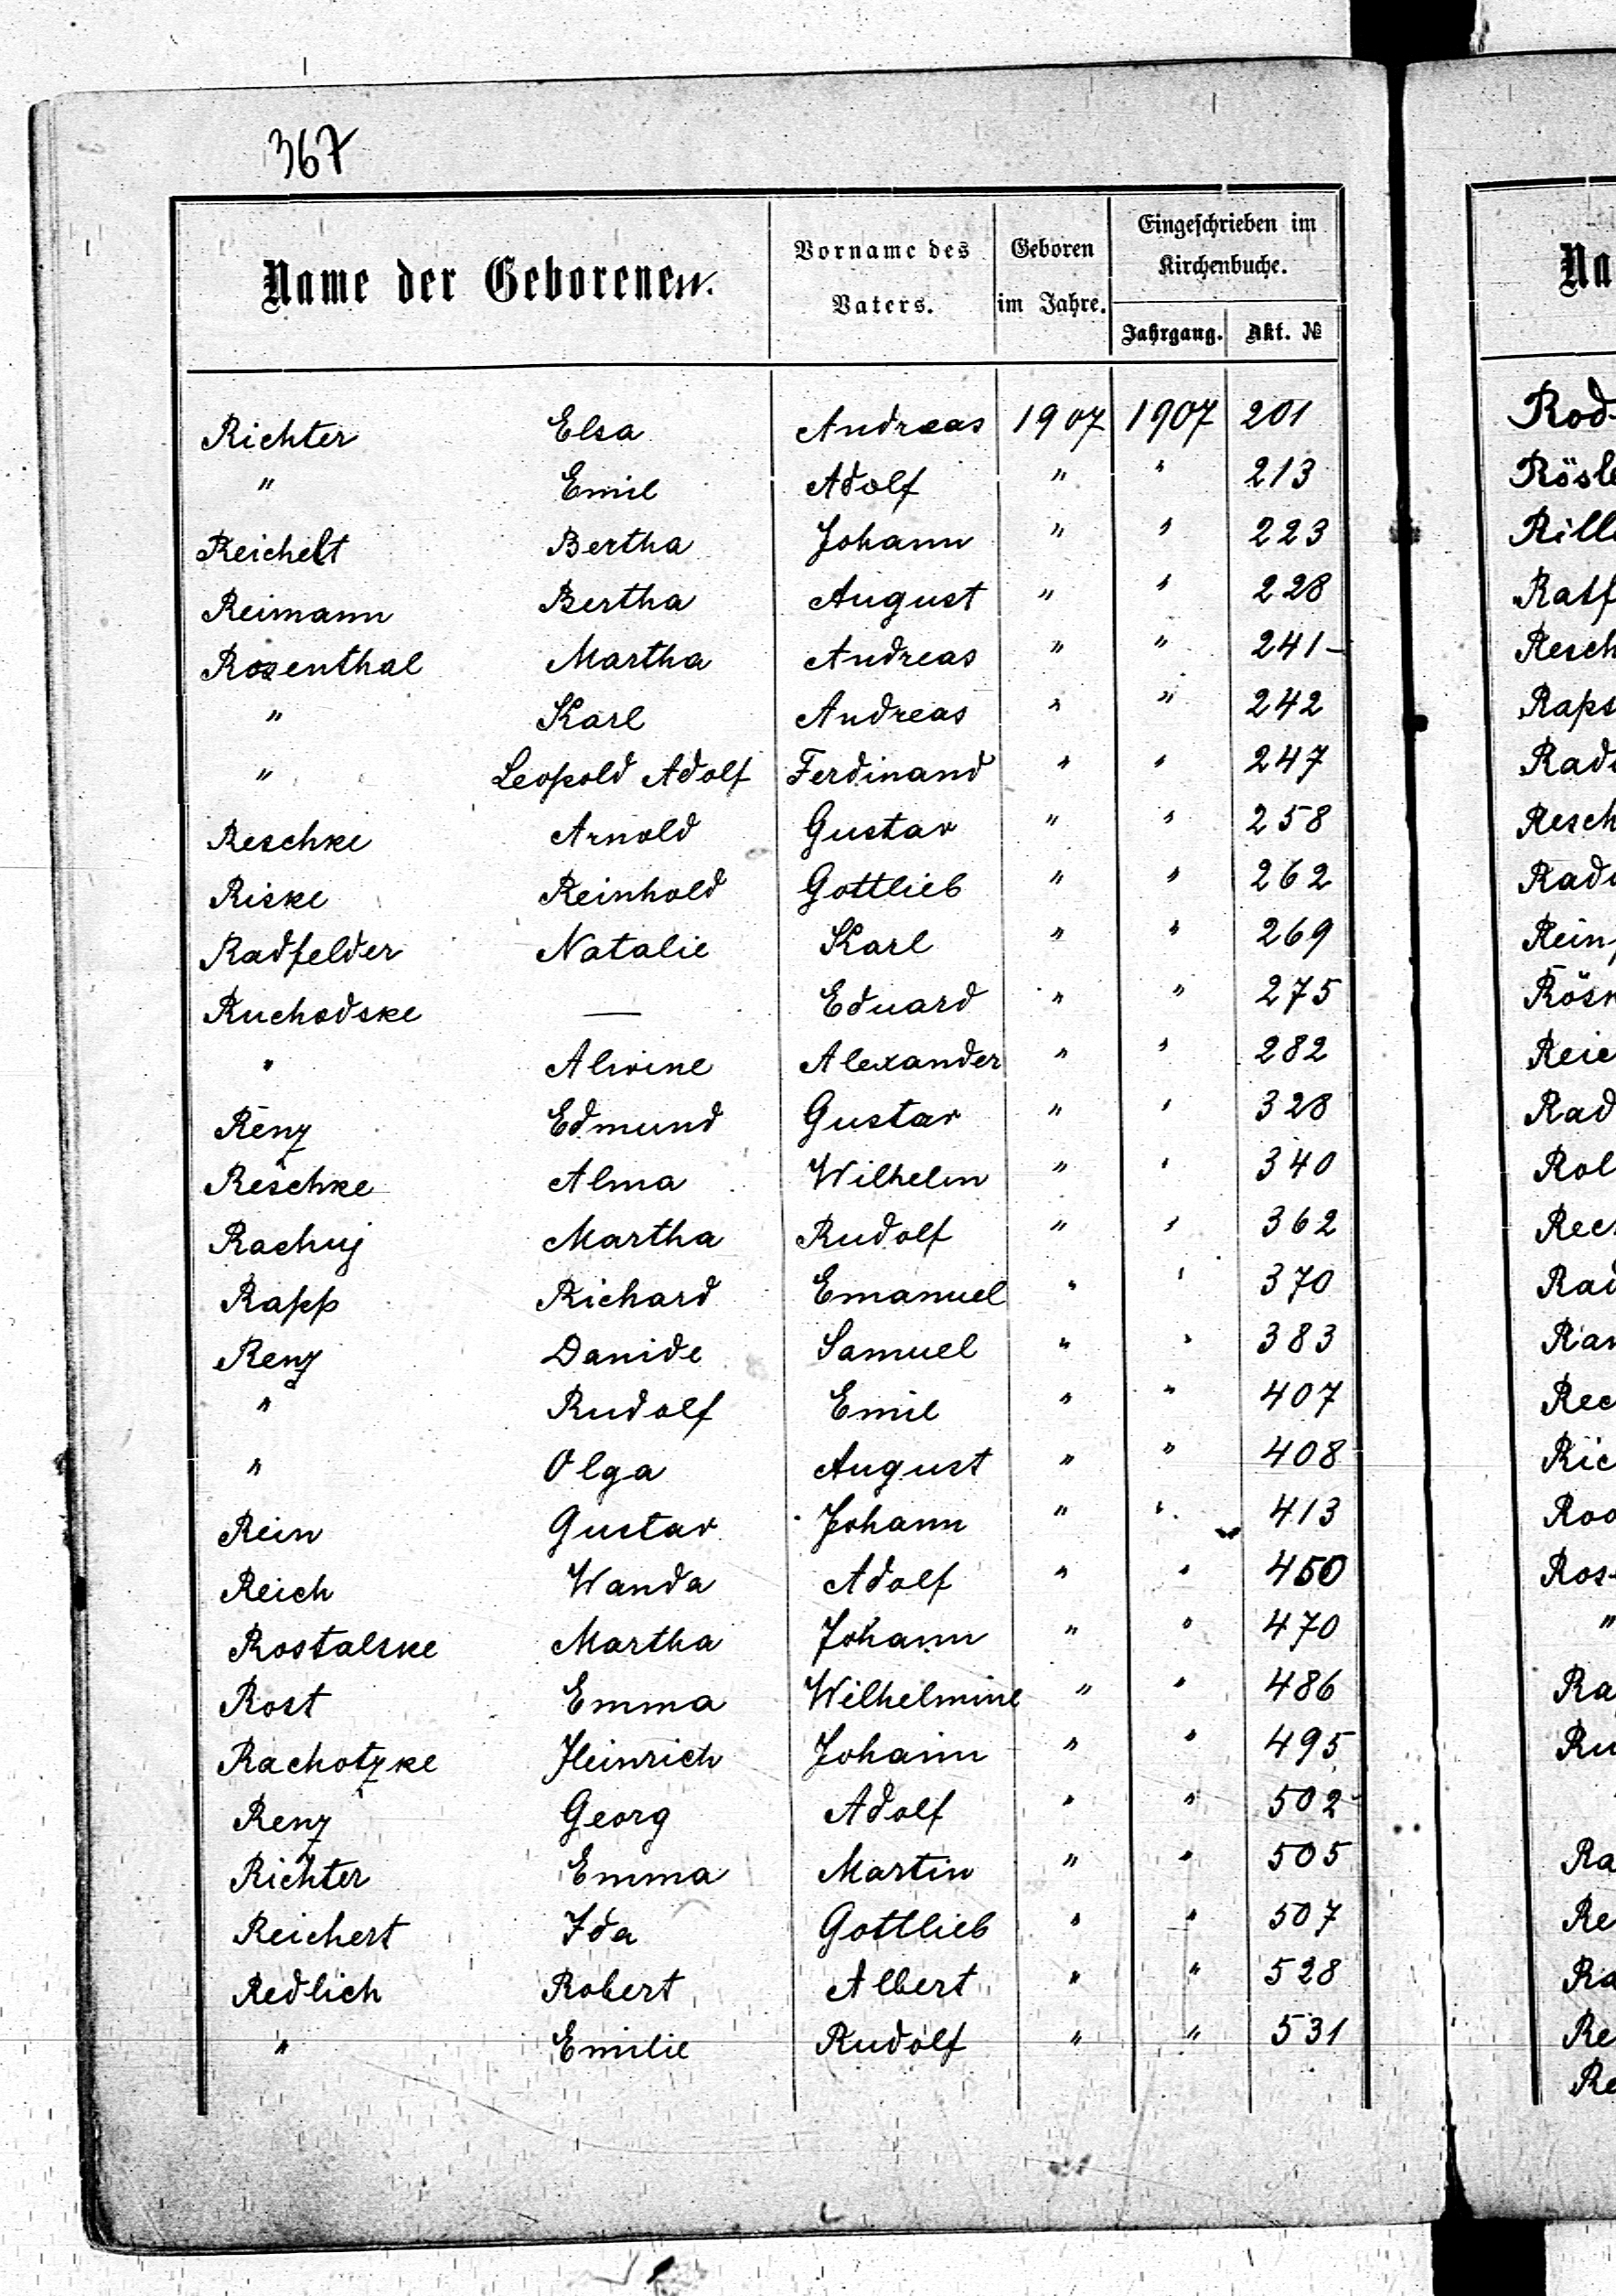 367
Name der Geborenen.
Vorname des Vaters.
Geboren im Jahre.
Eingeschrieben im Kirchenbuche.
Jahrgang. Akt. №
Richter Elsa Andreas 1907 1907 201
" Emil Adolf " " 213
Reichelt Bertha Johann " " 223
Reimann Bertha August " " 228
Rosenthal Martha Andreas " " 241-
" Karl Andreas " " 242
" Leopold Adolf Ferdinand " " 247
Reschke Arnold Gustav " " 258
Riske Reinhold Gottlieb " " 262
Radfelder Natalie Karl " " 269
Ruchodske — Eduard " " 275
" Alwine Alexander " " 282
Renz Edmund Gustav " " 328
Reschke Alma Wilhelm " " 340
Rachuj Martha Rudolf " " 362
Rapp Richard Emanuel " " 370
Renz Danide Samuel " " 383
" Rudolf Emil " " 407
" Olga August " " 408
Rein Gustav Johann " " 413
Reich Wanda Adolf " " 450
Rostalske Martha Johann " " 470
Rost Emma Wilhelmine " " 486
Rachotzke Heinrich Johann " " 495
Renz Georg Adolf " " 502
Richter Emma Martin " " 505
Reichert Ida Gottlieb " " 507
Redlich Robert Albert " " 528
" Emilie Rudolf " " 531
Na
Rod
Rösle
Rill
Ratf
Resch
Raps
Rad
Resch
Rad
Rein
Rösk
Reic
Rad
Rol
Rec
Rad
Ran
Rec
Ric
Roo
Ros
"
Ra
Ru
Ra
Re
Ra
Re
Re